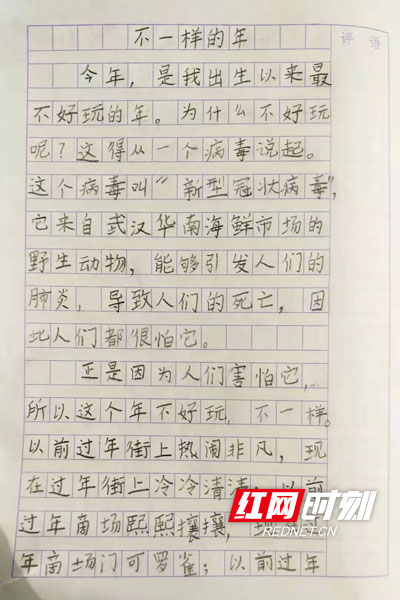 不一样的年
评语
今年，是我出生以来最
不好玩的年。为什么不好玩
呢？这得从一个病毒说起。
这个病毒叫“新型冠状病毒”，
它来自武汉华南海鲜市场的
野生动物，能够引发人们的
肺炎，导致人们的死亡，因
此人们都很怕它。
正是因为人们害怕它，
所以这个年不好玩，不一样。
以前过年街上热闹非凡，现
在过年街上冷冷清清；以前
过年商场熙熙攘攘，现
年商场门可罗雀；以前过年
红网时刻
REDNET.CN